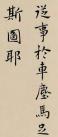 從事於車塵馬足
斯圖耶